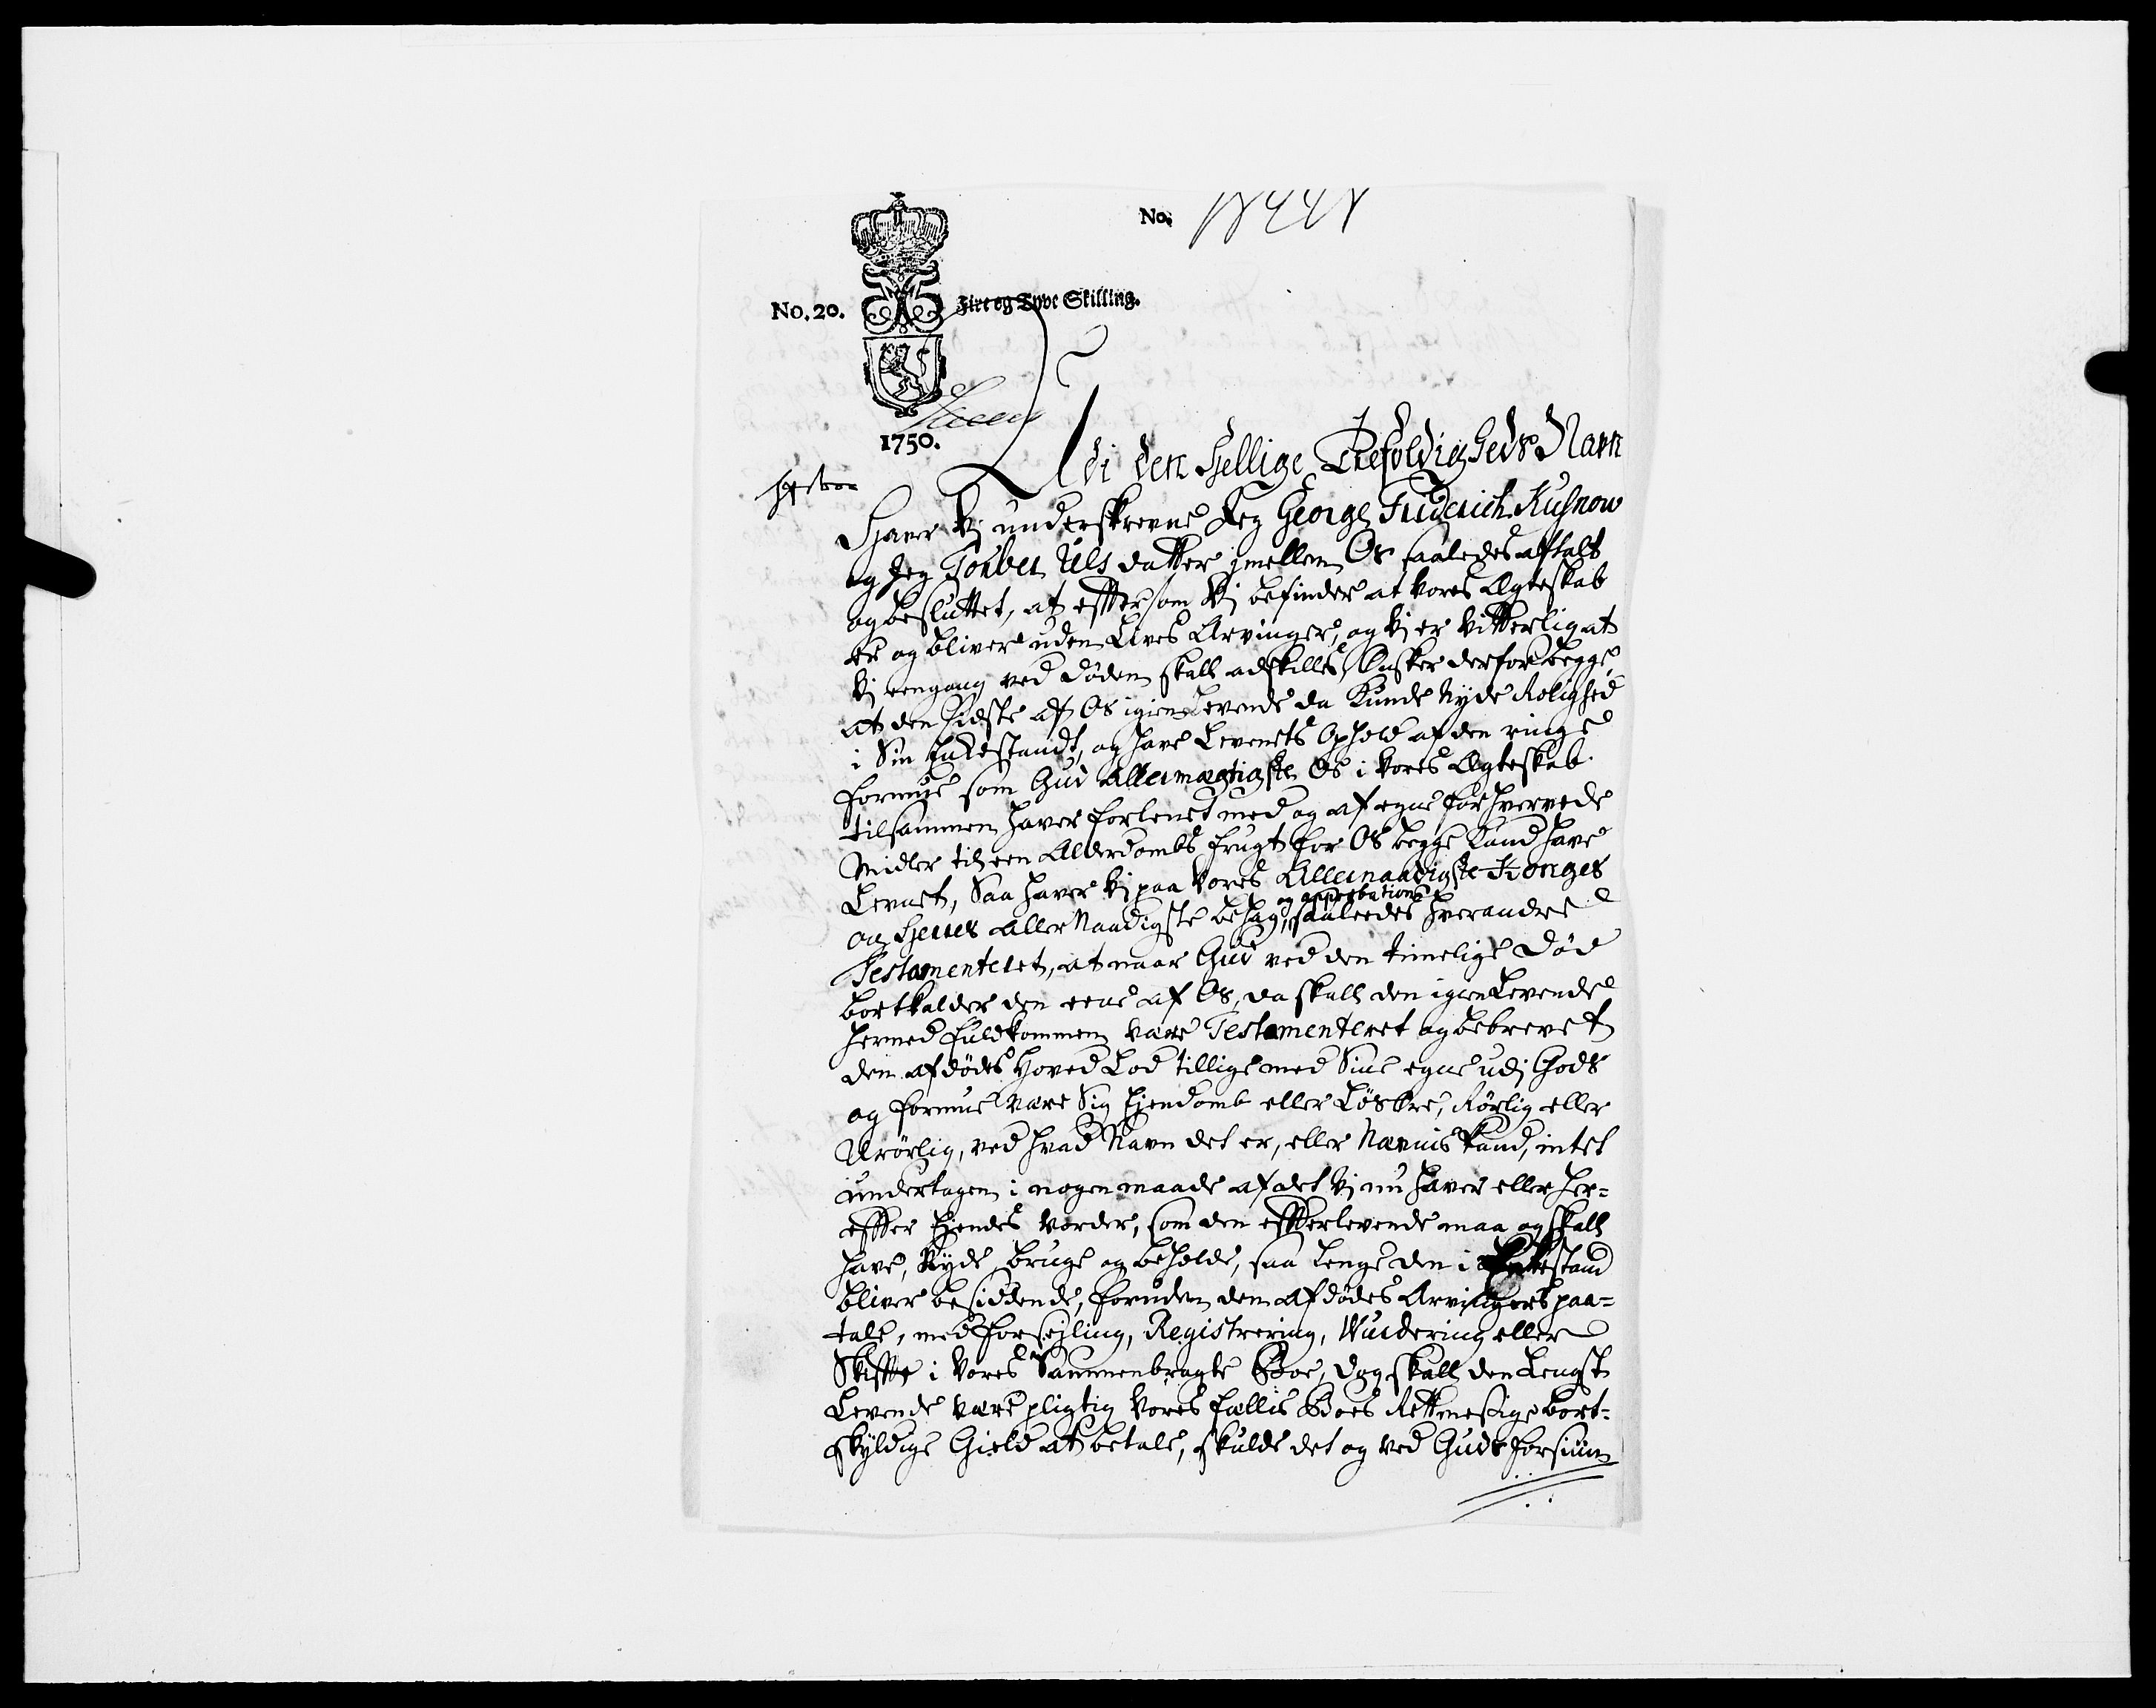 No. 18448
No. 20. Fire og Tyve Skilling.
1750.
Udi den Hellige Trefoldigheds Navn
Haver Vj underskrevne Jeg George Friderich Kusnow
og Jeg Torber Uls datter jmellem Os saaledes aftalt
og besluttet, at efftersom Vj befinder at vores Ægteskab
er og bliver uden Livs Arvinger, og Vj er Vitterlig at
Vj eengang ved døden skall adskilles, Ønsker derfor begge
at den sidste af Os igien Levende da Kunde Nyde Rolighed
i Sin Enkestandt, og have Levenets Ophold af den ringe
formue som Gud Allermægtigste Os i Vores Ægteskab
tilsammen haver forlenet med og af egne forhvervede
Midler til een Alderdombs frugt for Os begge Kand have
Levnet, Saa haver Vj paa Vores Allernaadigste Konges
og approbation
og Herres Aller Naadigste behag, saaleedes hverandre
Testamenteret, at naar Gud ved den timelige Død
bortkalder den eene af Os, da skall den igien Levende
hermed fuldkommen være Testamenteret og bebrevet
den afdødes Hoved Lod tillige med Sine egne udj Gods
og formue være Sig Ejendomb eller Løsøre, Rørlig eller
Urørlig, ved hvad Navn det er, eller Nævnis kand, intet
undertagen i nogen maade af det Vj nu haver eller her-
effter Ejendes vorder, som den effterlevende maa og skall
have, Nyde, bruge og beholde, saa lenge den i Enkestand
bliver besiddende, foruden den afdødes Arvingers paa-
tale, med forsejling, Registrering, Wurdering eller
Skiffte i Vores Sammenbragte Boe, dog skall den Lengst
Levende være pligtig Vores fællis Boes Rettmesige bort-
skyldige Gield at betale, skulde det og ved Guds forsiun